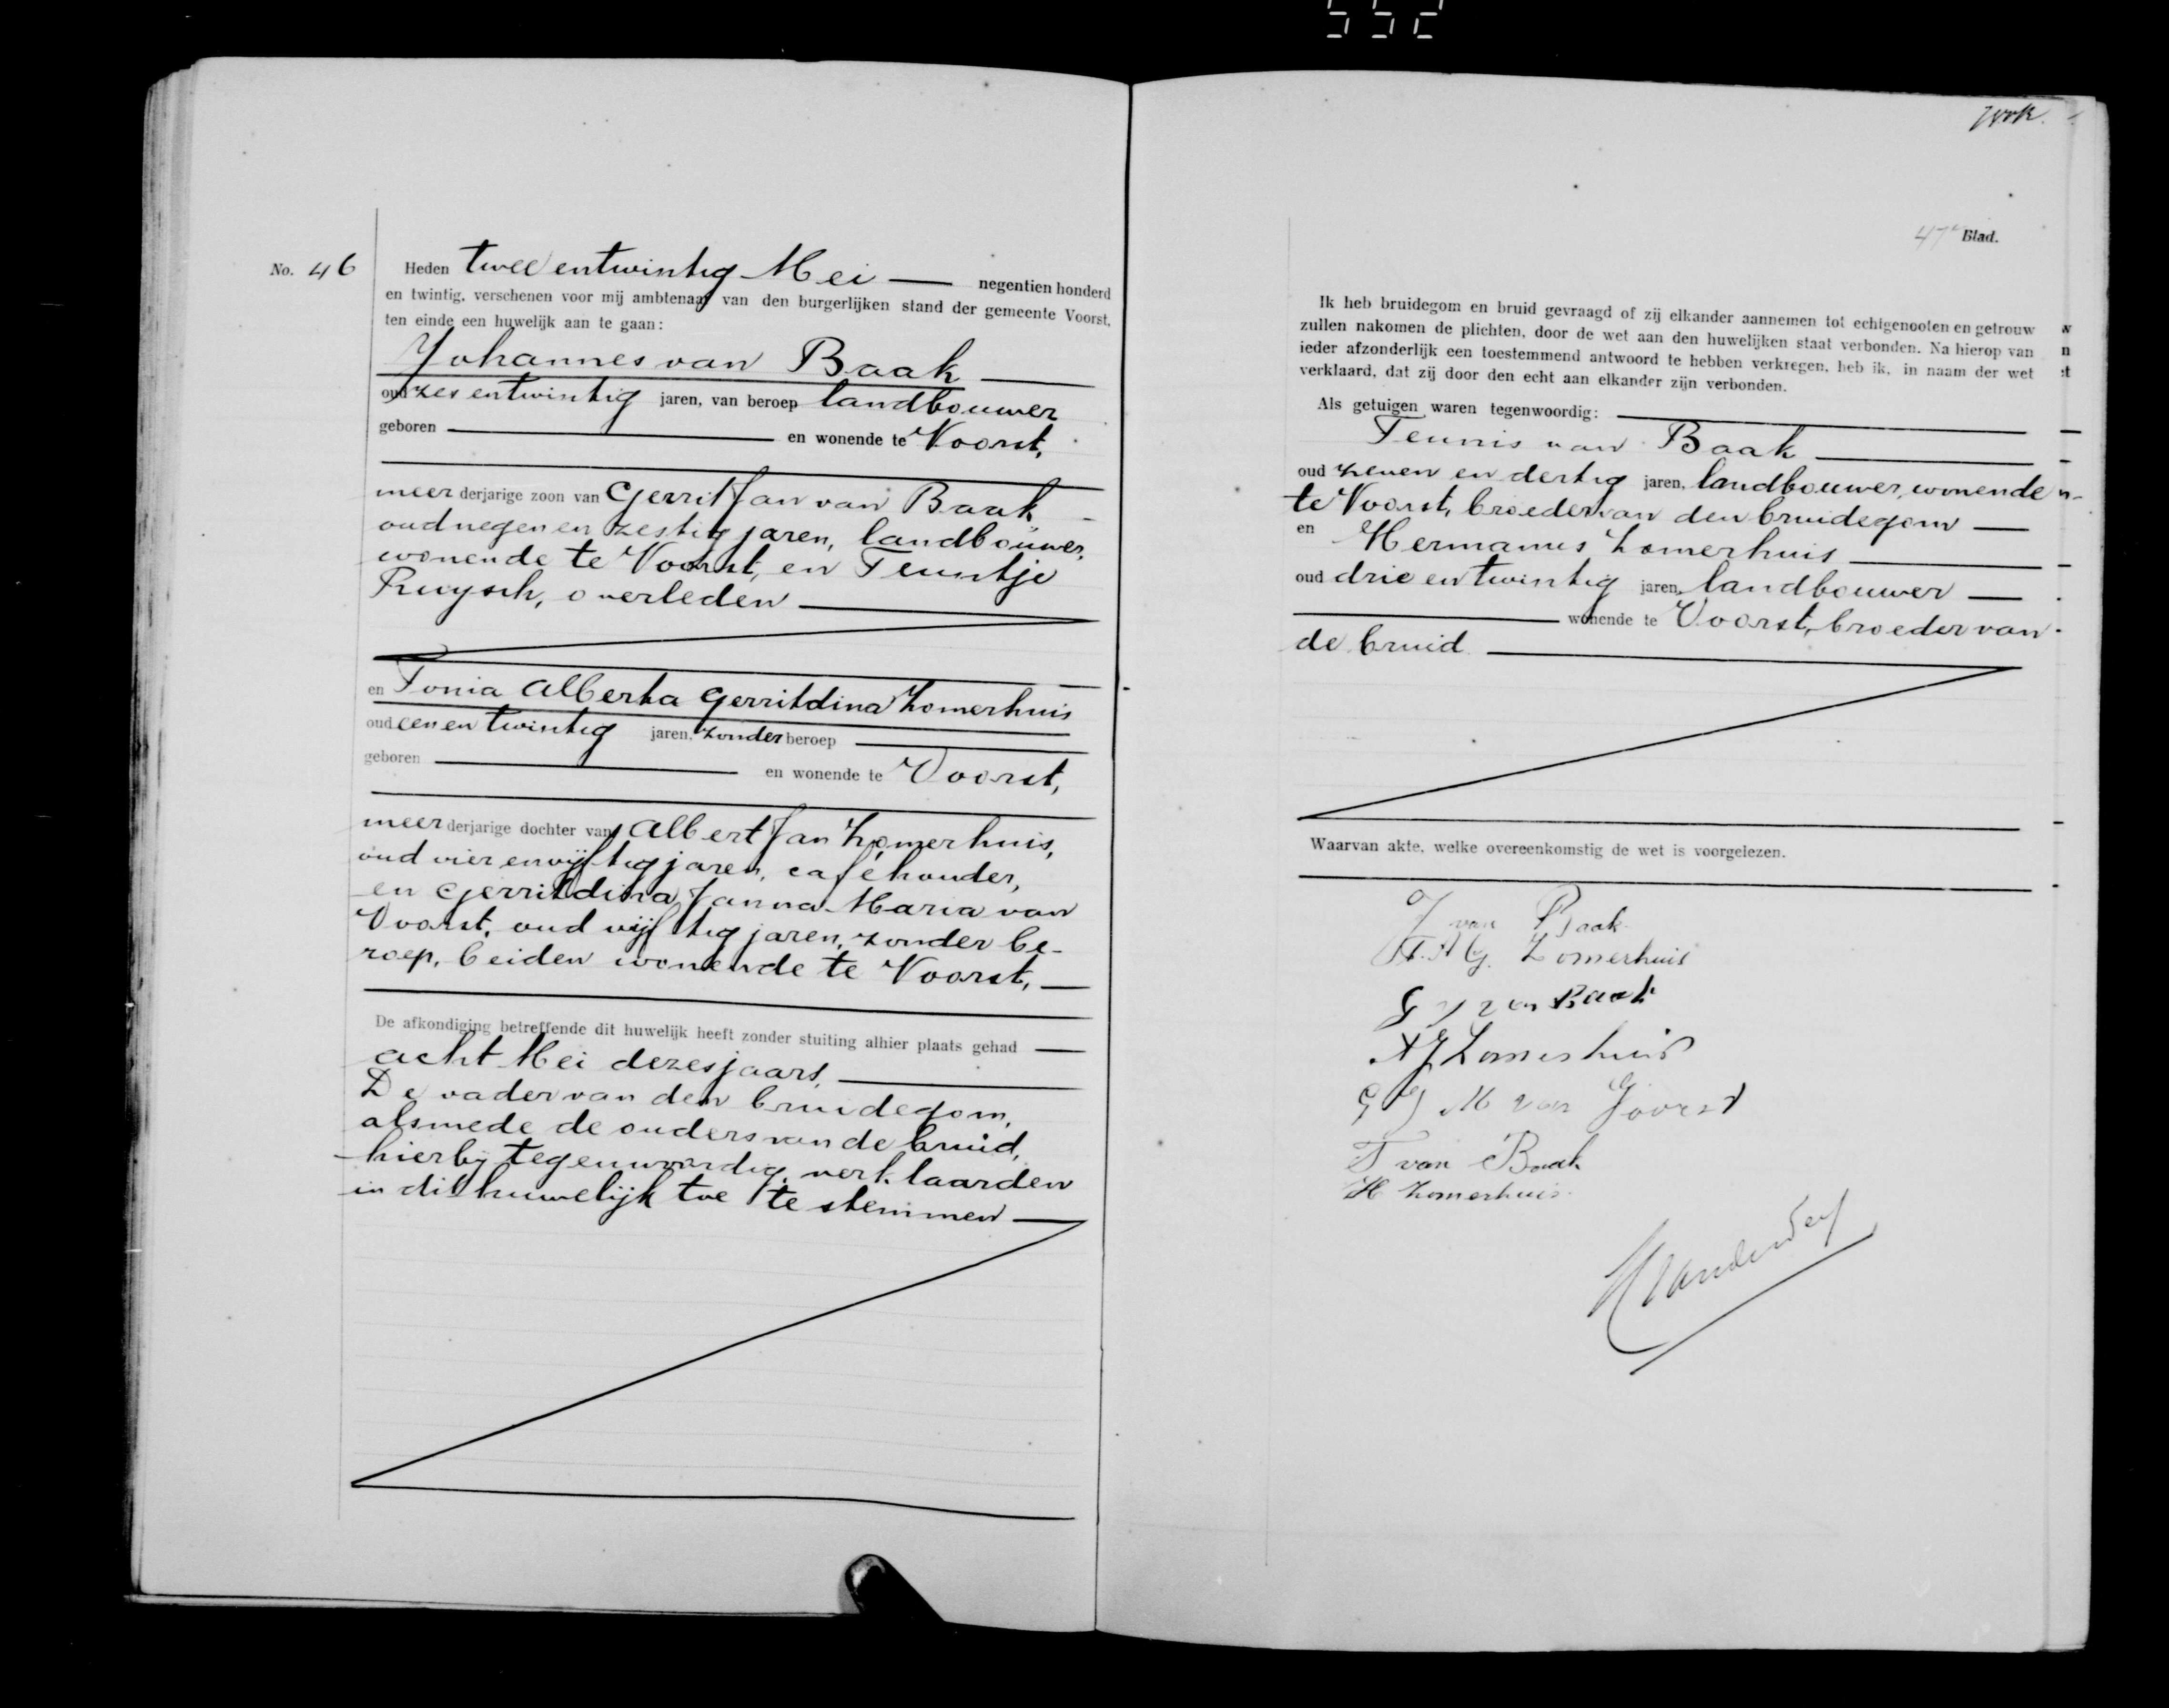 552
No. 46
Heden twee entwintig Mei — negentien honderd
en twintig, verschenen voor mij ambtenaar van den burgerlijken stand der gemeente Voorst,
ten einde een huwelijk aan te gaan:
Johannes van Baak —
oud zes entwintig jaren, van beroep landbouwer
geboren — en wonende te Voorst,
meerderjarige zoon van Gerrit Jan van Baak -
oud negen en zestig jaren, landbouwer,
wonende te Voorst, en Teuntje
Ruysch, overleden —
en Tonia Alberta Gerritdina Zomerhuis
oud een en twintig jaren, zonder beroep —
geboren — en wonende te Voorst,
meerderjarige dochter van Albert Jan Zomerhuis,
oud vier envijftig jaren, caféhouder,
en Gerritdina Janna Maria van
Voorst, oud vijftig jaren, zonder be-
roep, beiden wonende te Voorst, —
De afkondiging betreffende dit huwelijk heeft zonder stuiting alhier plaats gehad —
acht Mei dezes jaars, —
De vader van den bruidegom,
alsmede de ouders van de bruid,
hierbij tegenwoordig, verklaarden
in dit huwelijk toe te stemmen —
47e Blad.
Ik heb bruidegom en bruid gevraagd of zij elkander aannemen tot echtgenooten en getrouw
zullen nakomen de plichten, door de wet aan den huwelijken staat verbonden. Na hierop van
ieder afzonderlijk een toestemmend antwoord te hebben verkregen, heb ik, in naam der wet
verklaard, dat zij door den echt aan elkander zijn verbonden.
Als getuigen waren tegenwoordig: —
Teunis van Baak —
oud zeven en dertig jaren, landbouwer, wonende
te Voorst, broeder van den bruidegom —
en Hermanus Zomerhuis —
oud drie en twintig jaren, landbouwer —
— wonende te Voorst, broeder van
de bruid —
Waarvan akte, welke overeenkomstig de wet is voorgelezen.
J van Baak
T. A G. Zomerhuis
G J van Baak
A J Zomerhuis
G J M van Voorst
T van Baak
H Zomerhuis